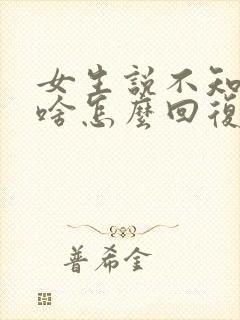 女生說不知
啥怎麼回復
普希金